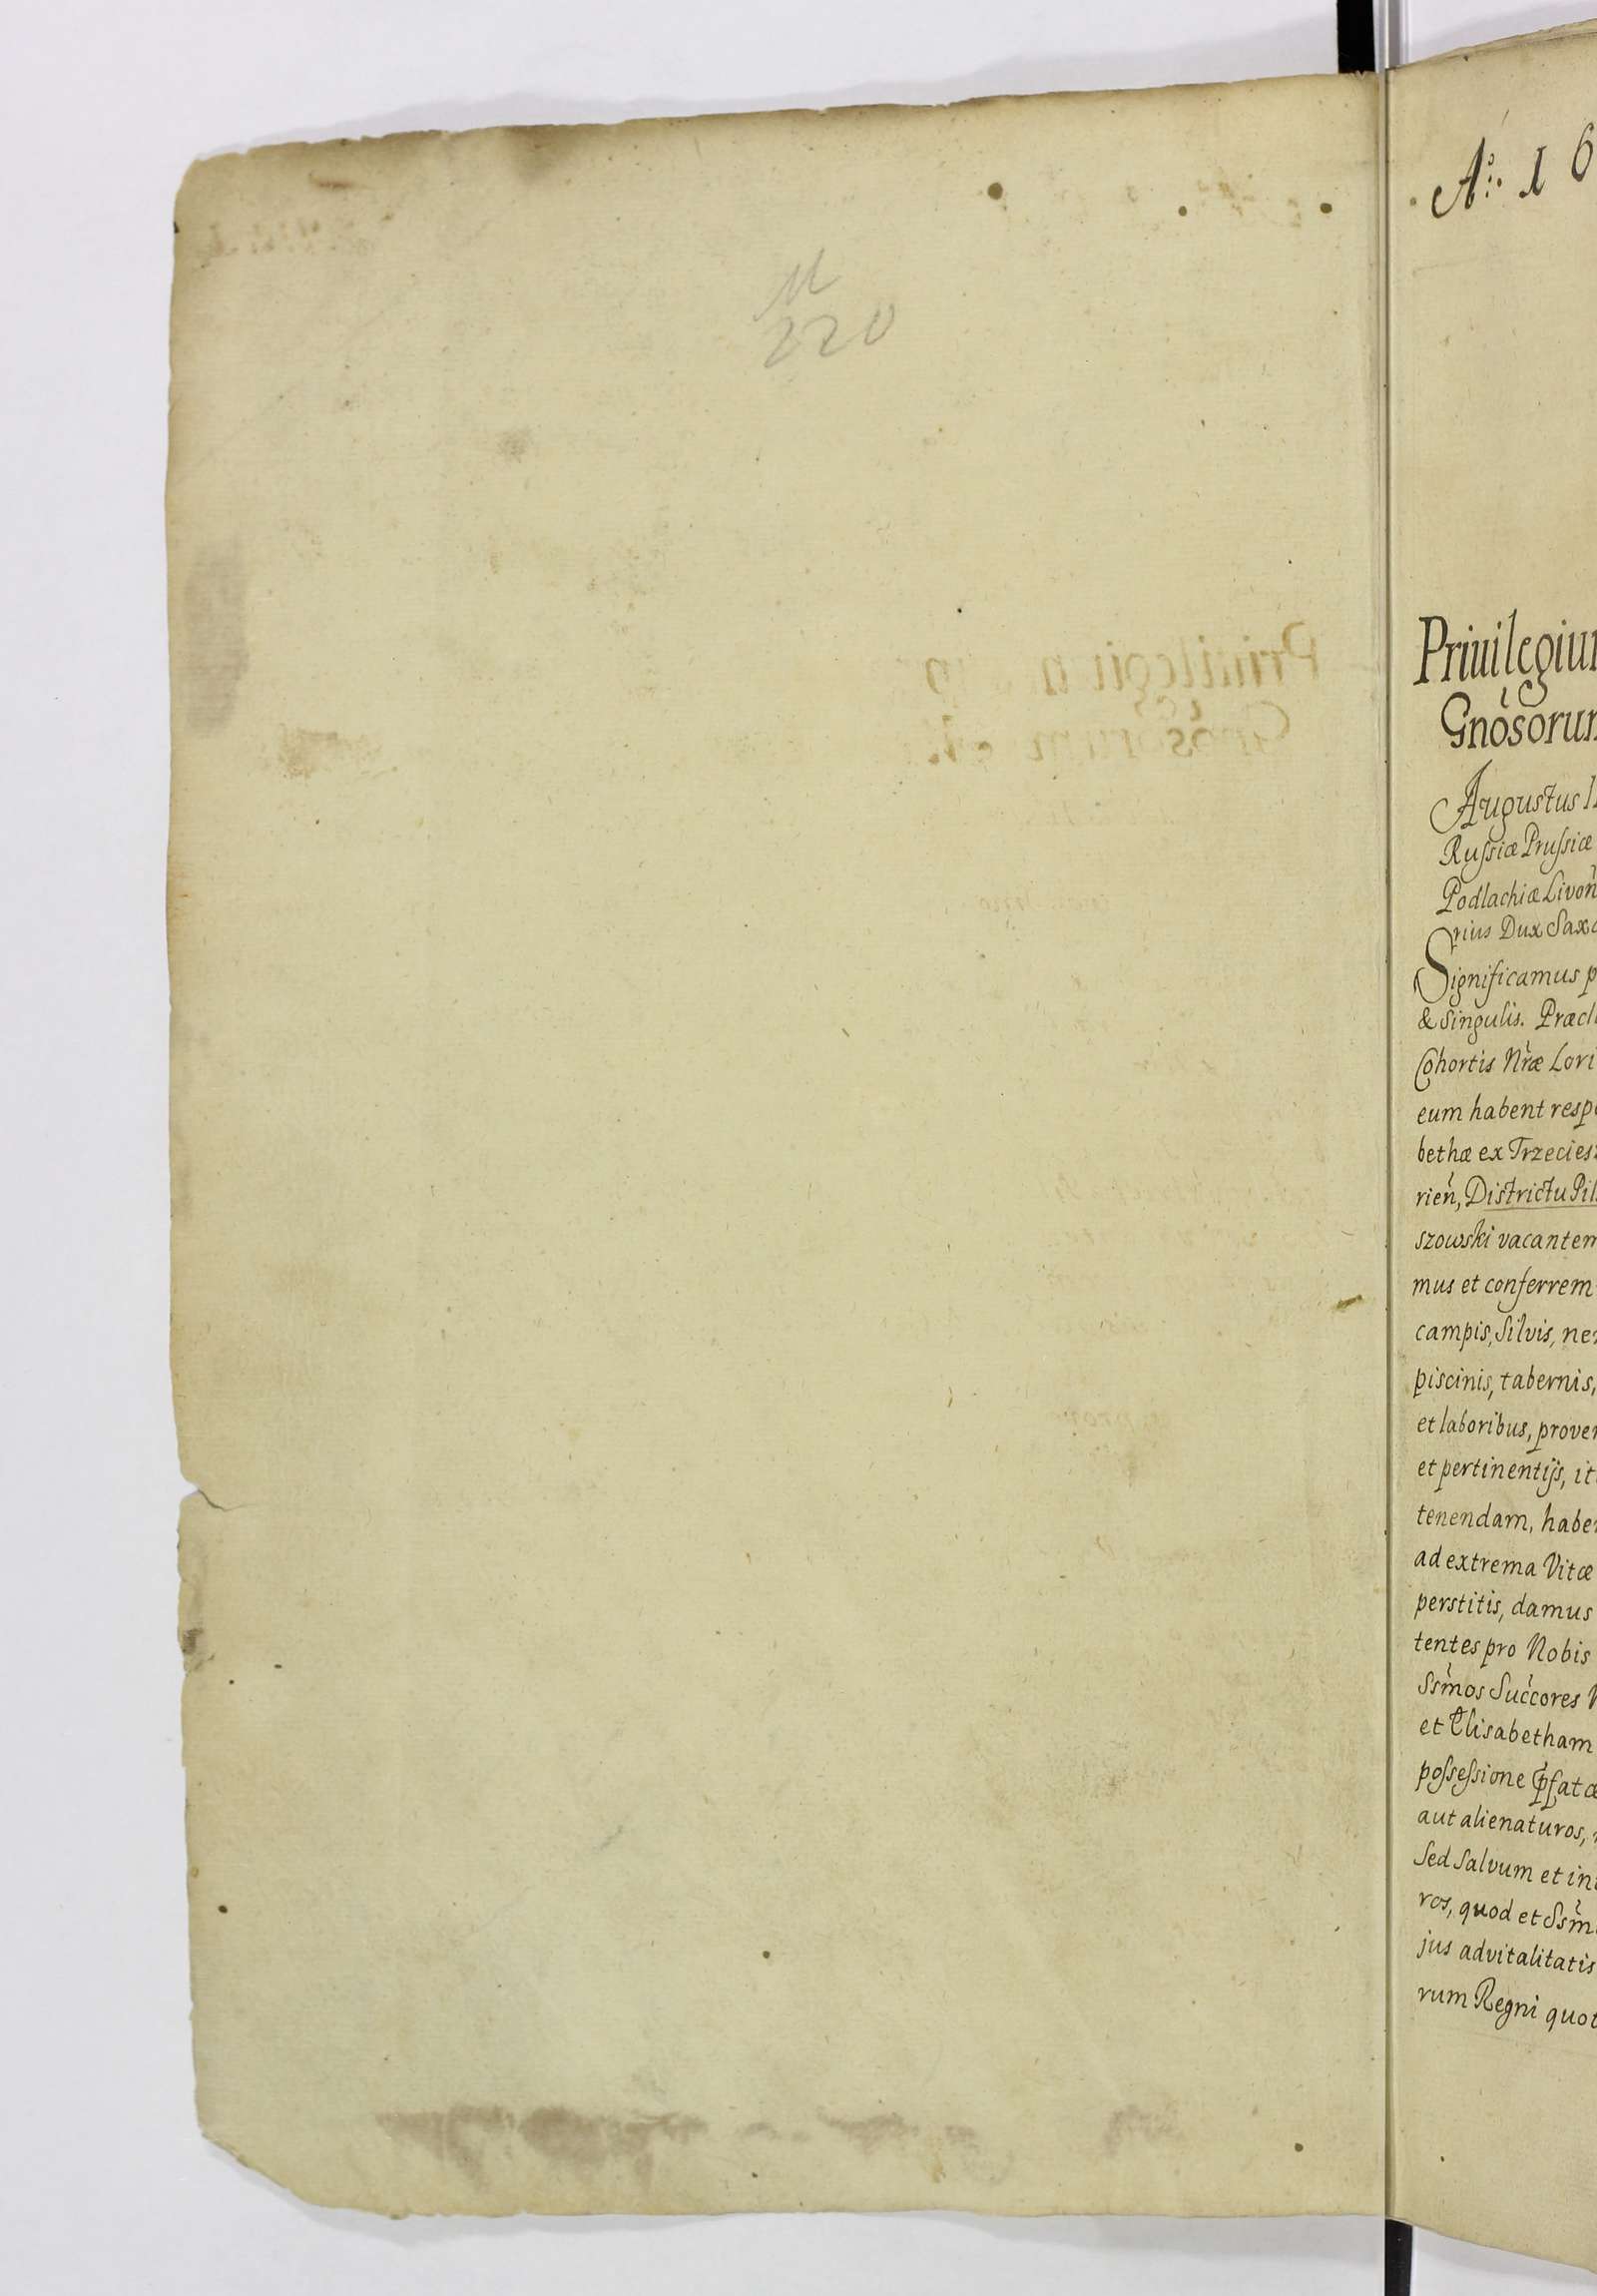 M
220
Aº. 1 6
Priuilegiu
Gnosorum
Augustus II
Russiæ Prussiæ
Podlachiæ Livoñ
rius Dux Saxo
Significamus p
& Singulis. Præcl
Cohortis Nræ Lori
eum habent resp
bethæ ex Trzecies
rień, Districtu Pil
szowski vacantem
mus et conferrem
campis, Silvis, ne
piscinis, tabernis,
et laboribus, prove
et pertinentijs, it
tenendam, habe
ad extrema Vitæ
perstitis, damus
tentes pro Nobis
Ssmos Succores N
et Elisabetham
possessione pfatæ
aut alienaturos,
Sed Salvum et in
ros, quod et Ssm
jus advitalitatis
rum Regni quot